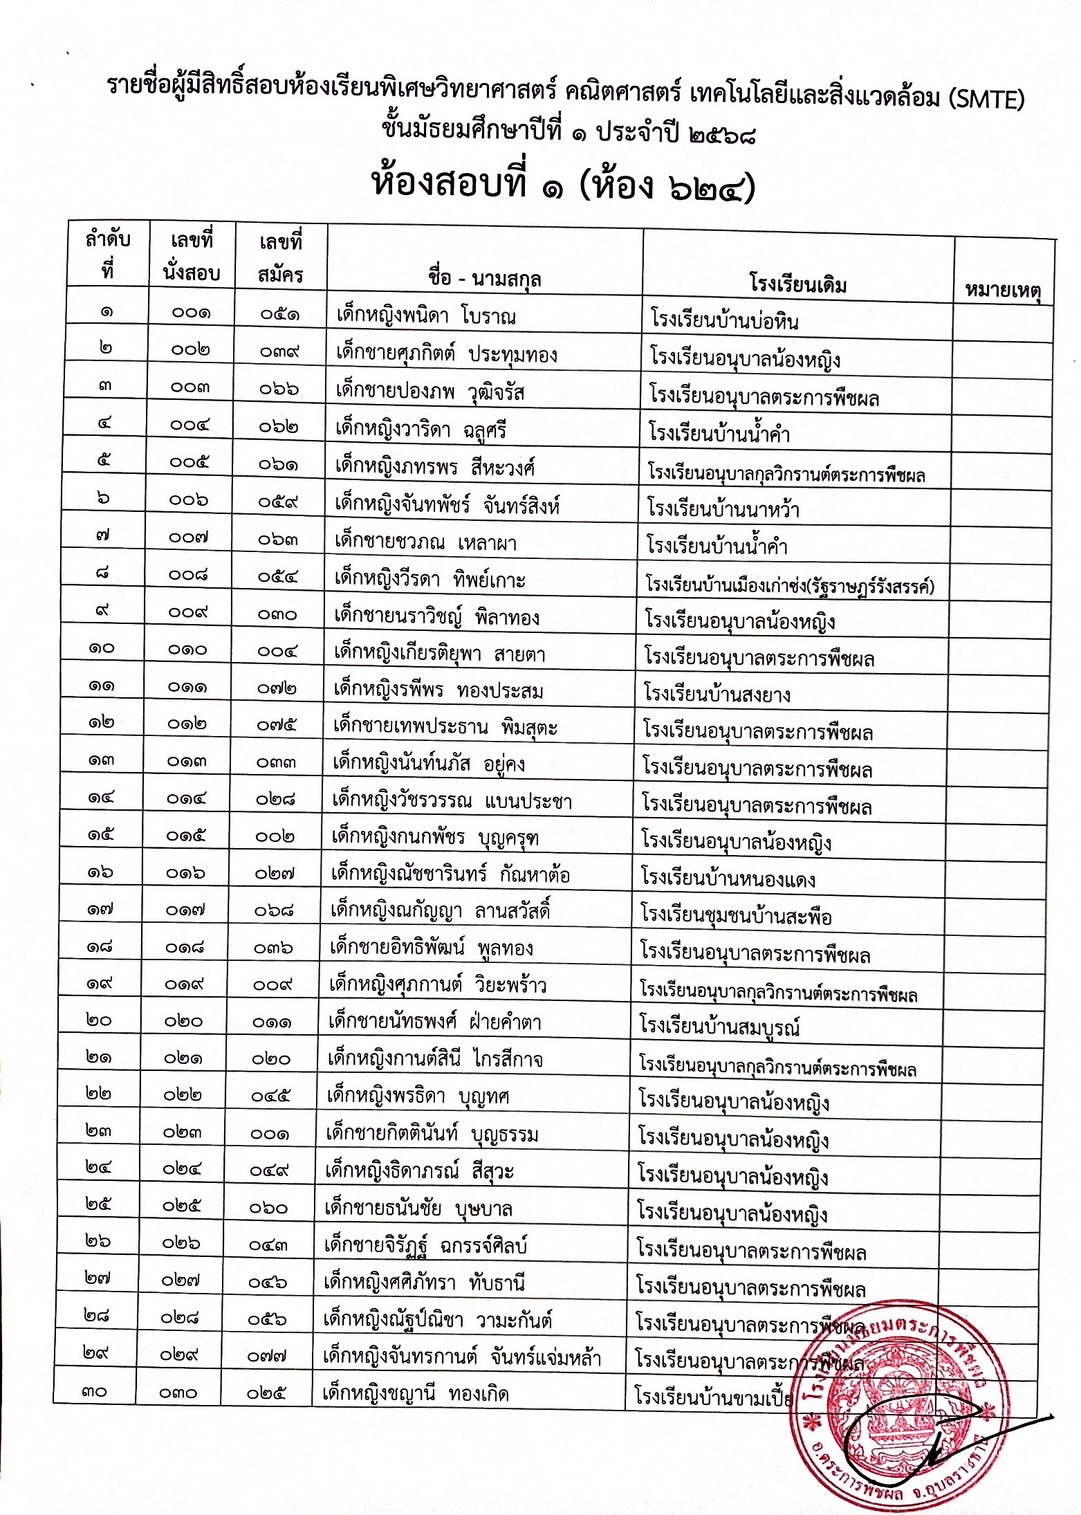 รายชื่อผู้มีสิทธิ์สอบห้องเรียนพิเศษวิทยาศาสตร์ คณิตศาสตร์ เทคโนโลยีและสิ่งแวดล้อม (SMTE)
ชั้นมัธยมศึกษาปีที่ ๑ ประจำปี ๒๕๖๘
ห้องสอบที่ ๑ (ห้อง ๖๒๔)
ลำดับที่ เลขที่นั่งสอบ เลขที่สมัคร ชื่อ - นามสกุล โรงเรียนเดิม หมายเหตุ
๑ ๐๐๑ ๐๕๑ เด็กหญิงพนิดา โบราณ โรงเรียนบ้านบ่อหิน
๒ ๐๐๒ ๐๓๙ เด็กชายศุภกิตต์ ประทุมทอง โรงเรียนอนุบาลน้องหญิง
๓ ๐๐๓ ๐๖๖ เด็กชายปองภพ วุฒิจรัส โรงเรียนอนุบาลตระการพืชผล
๔ ๐๐๔ ๐๖๒ เด็กหญิงวาริดา ฉลูศรี โรงเรียนบ้านน้ำคำ
๕ ๐๐๕ ๐๖๑ เด็กหญิงภทรพร สีหะวงศ์ โรงเรียนอนุบาลกุลวิกรานต์ตระการพืชผล
๖ ๐๐๖ ๐๕๙ เด็กหญิงจันทพัชร์ จันทร์สิงห์ โรงเรียนบ้านนาหว้า
๗ ๐๐๗ ๐๖๓ เด็กชายชวภณ เหลาผา โรงเรียนบ้านน้ำคำ
๘ ๐๐๘ ๐๕๔ เด็กหญิงวีรดา ทิพย์เกาะ โรงเรียนบ้านเมืองเก่าซ่ง(รัฐราษฏร์รังสรรค์)
๙ ๐๐๙ ๐๓๐ เด็กชายนราวิชญ์ พิลาทอง โรงเรียนอนุบาลน้องหญิง
๑๐ ๐๑๐ ๐๐๔ เด็กหญิงเกียรติยุพา สายตา โรงเรียนอนุบาลตระการพืชผล
๑๑ ๐๑๑ ๐๗๒ เด็กหญิงรพีพร ทองประสม โรงเรียนบ้านสงยาง
๑๒ ๐๑๒ ๐๗๕ เด็กชายเทพประธาน พิมสุตะ โรงเรียนอนุบาลตระการพืชผล
๑๓ ๐๑๓ ๐๓๓ เด็กหญิงนันท์นภัส อยู่คง โรงเรียนอนุบาลตระการพืชผล
๑๔ ๐๑๔ ๐๒๘ เด็กหญิงวัชรวรรณ แบนประชา โรงเรียนอนุบาลตระการพืชผล
๑๕ ๐๑๕ ๐๐๒ เด็กหญิงกนกพัชร บุญครุฑ โรงเรียนอนุบาลน้องหญิง
๑๖ ๐๑๖ ๐๒๗ เด็กหญิงณัชชารินทร์ กัณหาต้อ โรงเรียนบ้านหนองแดง
๑๗ ๐๑๗ ๐๖๘ เด็กหญิงณกัญญา ลานสวัสดิ์ โรงเรียนชุมชนบ้านสะพือ
๑๘ ๐๑๘ ๐๓๖ เด็กชายอิทธิพัฒน์ พูลทอง โรงเรียนอนุบาลตระการพืชผล
๑๙ ๐๑๙ ๐๐๙ เด็กหญิงศุภกานต์ วิยะพร้าว โรงเรียนอนุบาลกุลวิกรานต์ตระการพืชผล
๒๐ ๐๒๐ ๐๑๑ เด็กชายนัทธพงศ์ ฝ่ายคำตา โรงเรียนบ้านสมบูรณ์
๒๑ ๐๒๑ ๐๒๐ เด็กหญิงกานต์สินี ไกรสีกาจ โรงเรียนอนุบาลกุลวิกรานต์ตระการพืชผล
๒๒ ๐๒๒ ๐๔๕ เด็กหญิงพรธิดา บุญทศ โรงเรียนอนุบาลน้องหญิง
๒๓ ๐๒๓ ๐๐๑ เด็กชายกิตตินันท์ บุญธรรม โรงเรียนอนุบาลน้องหญิง
๒๔ ๐๒๔ ๐๔๙ เด็กหญิงธิดาภรณ์ สีสุวะ โรงเรียนอนุบาลน้องหญิง
๒๕ ๐๒๕ ๐๖๐ เด็กชายธนันชัย บุษบาล โรงเรียนอนุบาลน้องหญิง
๒๖ ๐๒๖ ๐๔๓ เด็กชายจิรัฏฐ์ ฉกรรจ์ศิลป์ โรงเรียนอนุบาลตระการพืชผล
๒๗ ๐๒๗ ๐๔๖ เด็กหญิงศศิภัทรา ทับธานี โรงเรียนอนุบาลตระการพืชผล
๒๘ ๐๒๘ ๐๕๖ เด็กหญิงณัฐป์ณิชา วามะกันต์ โรงเรียนอนุบาลตระการพืชผล
๒๙ ๐๒๙ ๐๗๗ เด็กหญิงจันทรกานต์ จันทร์แจ่มหล้า โรงเรียนอนุบาลตระการพืชผล
๓๐ ๐๓๐ ๐๒๕ เด็กหญิงชญานี ทองเกิด โรงเรียนบ้านขามเปี้ย
โรงเรียนมัธยมตระการพืชผล
อ.ตระการพืชผล จ.อุบลราชธานี